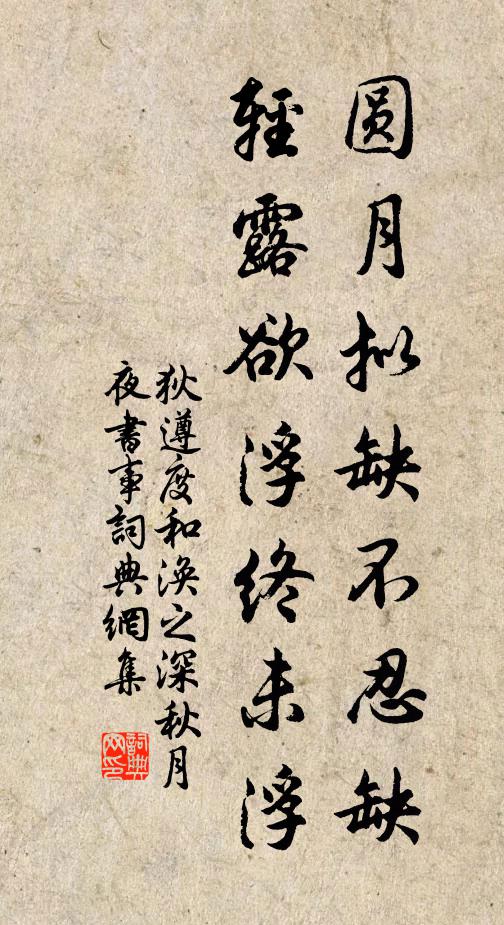 圆月拟缺不忍缺
輕露欲浮終未浮
狄遵度和渙之深秋月
夜書事詞典網集
詞典
网印